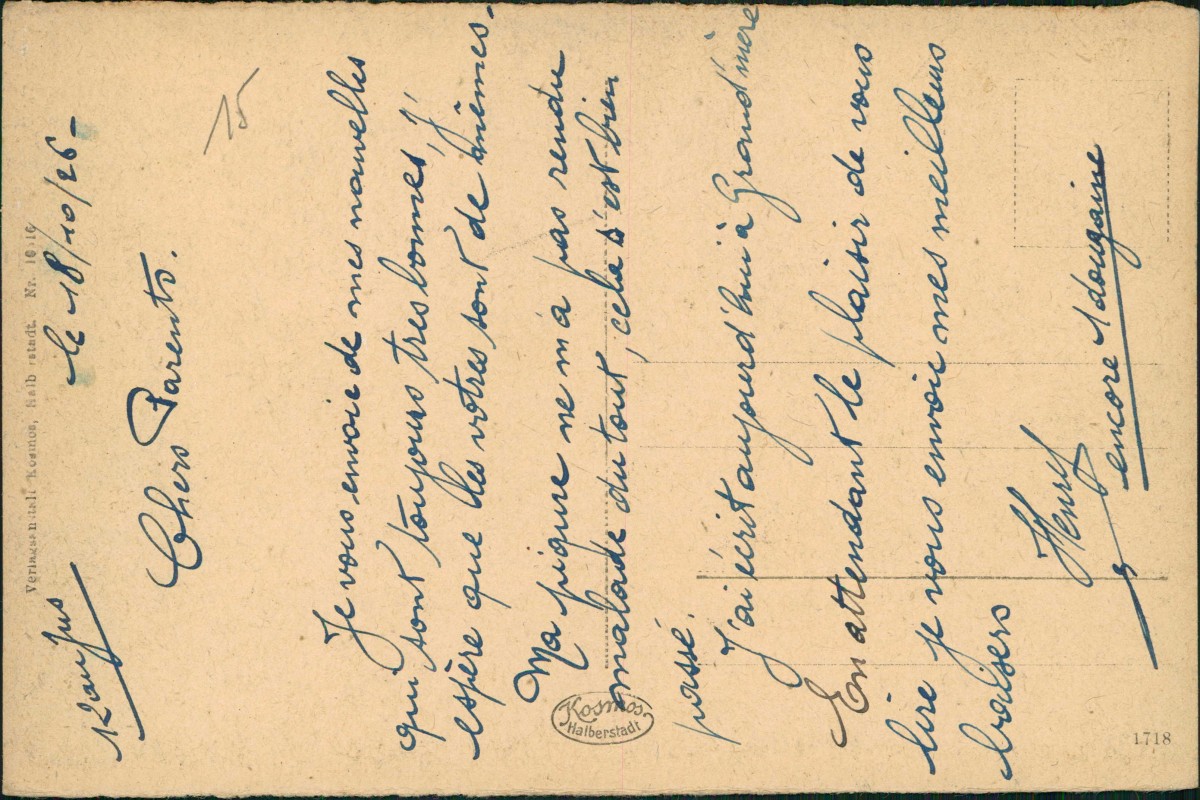 Verlagsanstalt Kosmos, Halberstadt. Nr.
le 18/10/26 -
15
Chers Parents.
Je vous envoie de mes nouvelles
qui sont toujours tres bonnes, j'
espère que les votres sont de mièmes.
Ma piqure ne m'a pas rendu
malade du tout, cela s'est bien
passé.
J'ai écrit aujourd'hui à Grand'mère
En attendant le plaisir de vous
lire je vous envoie mes meilleurs
baisers
Henry
encore 1 douzaine
Kosmos
Halberstadt
1718